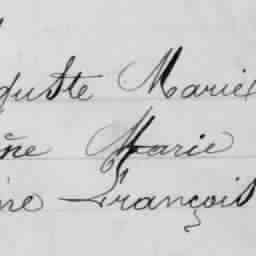 guste Marie
ne Marie
ine François